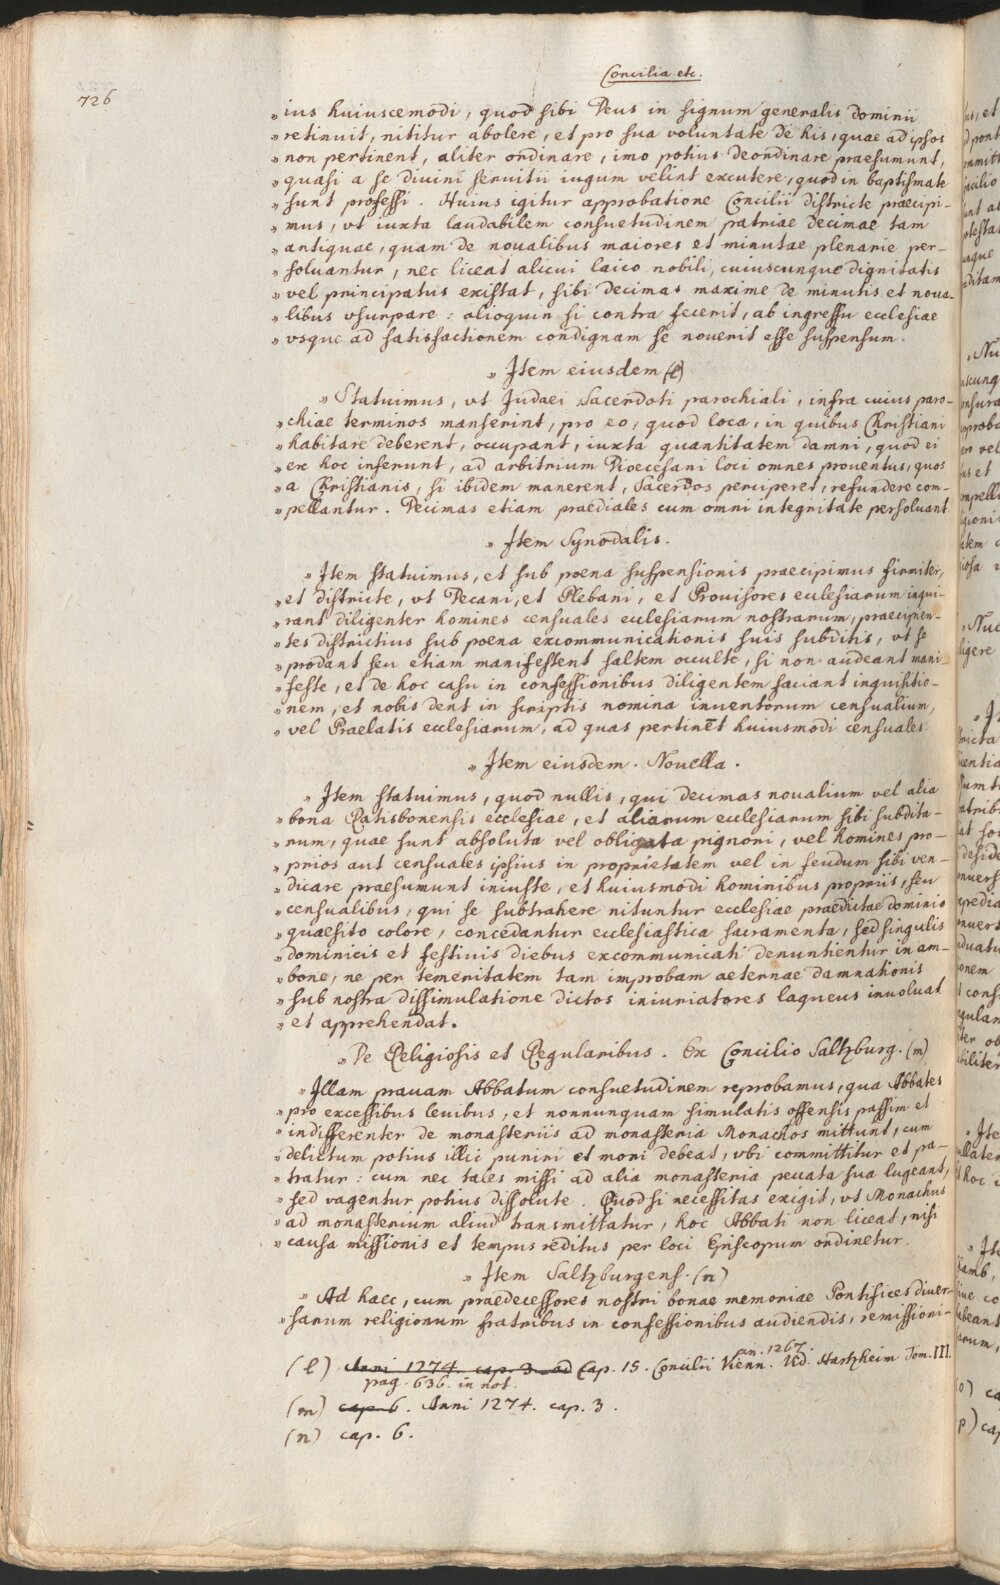 Concilia etc.
726
„ius huiuscemodi, quod sibi Deus in signum generalis dominii
„retinuit, nititur abolere, et pro sua voluntate de his, quae ad ipsos
„non pertinent, aliter ordinare, imo potius deordinare praesumunt,
„quasi a se divini servitii iugum velint excutere, quod in baptismate
„sunt professi. Huius igitur approbatione Concilii districte praecipi-
„mus, vt iuxta laudabilem consuetudinem patriae decimae tam
„antiquae, quam de noualibus maiores et minutae plenarie per-
„soluantur, nec liceat alicui laico nobili, cuiuscunque dignitatis
„vel principatus existat, sibi decimas maxime de minutis et noua-
„libus vsurpare: alioquin si contra fecerit, ab ingressu ecclesiae
„vsque ad satisfactionem condignam se nouerit esse suspensum.
„Item eiusdem (l)
„Statuimus, vt Judaei Sacerdoti parochiali, infra cuius paro-
„chiae terminos manserint, pro eo, quod loca, in quibus Christiani
„habitare deberent, occupant, iuxta quantitatem damni, quod ei
„ex hoc inferunt, ad arbitrium Dioecesani loci omnes prouentus, quos
„a Christianis, si ibidem manerent, Sacerdos perciperet, refundere com-
„pellantur. Decimas etiam praediales cum omni integritate persoluant.
„Item Synodalis.
„Item statuimus, et sub poena suspensionis praecipimus firmiter,
„et districte, vt Decani, et Plebani, et Prouisores ecclesiarum inqui-
„rant diligenter homines censuales ecclesiarum nostrarum, praecipien-
„tes districtius sub poena excommunicationis suis subditis, vt se
„prodant seu etiam manifestent saltem occulte, si non audeant mani
„feste, et de hoc casu in confessionibus diligentem faciant inquisitio-
„nem, et nobis dent in scriptis nomina inuentorum censualium,
„vel Praelatis ecclesiarum, ad quas pertinēt huiusmodi censuales.
„Item eiusdem. Nouella.
„Item statuimus, quod nullis, qui decimas noualium vel alia
„bona Ratisbonensis ecclesiae, et aliarum ecclesiarum sibi subdita-
„rum, quae sunt absoluta vel obligata pignori, vel homines pro-
„prios aut censuales ipsius in proprietatem vel in feudum sibi ven-
„dicare praesumunt iniuste, et huiusmodi hominibus propriis, seu
„censualibus, qui se subtrahere nituntur ecclesiae praedictae dominio
„quaesito colore, concedantur ecclesiastica sacramenta, sed singulis
„dominicis et festiuis diebus excommunicati denuntientur in am-
„bone, ne per temeritatem tam improbam aeternae damnationis
„sub nostra dissimulatione dictos iniuriatores laqueus inuoluat
„et apprehendat.
„De Religiosis et Regularibus. Ex Concilio Saltzburg. (m)
„Illam prauam Abbatum consuetudinem reprobamus, qua Abbates
„pro excessibus leuibus, et nonnunquam simulatis offensis passim et
„indifferenter de monasteriis ad monasteria Monachos mittunt, cum
„delictum potius illic puniri et mori debeat, vbi committitur et pa-
„tratur: cum nec tales missi ad alia monasteria peccata sua lugeant,
„sed vagentur potius dissolute. Quod si necessitas exigit, vt Monachus
„ad monasterium aliud transmittatur, hoc Abbati non liceat, nisi
„causa missionis et tempus reditus per loci Episcopum ordinetur.
„Item Saltzburgens. (n)
„Ad haec, cum praedecessores nostri bonae memoriae Pontifices diver-
„sarum religionum fratribus in confessionibus audiendis, remissioni-
(l) Anni 1274. cap. 3. ad Cap. 15. Concilii Vienn. an. 1267. Vid. Hartzheim Tom. III.
pag. 636. in not.
(m) cap. 6. Anni 1274. cap. 3.
(n) cap. 6.